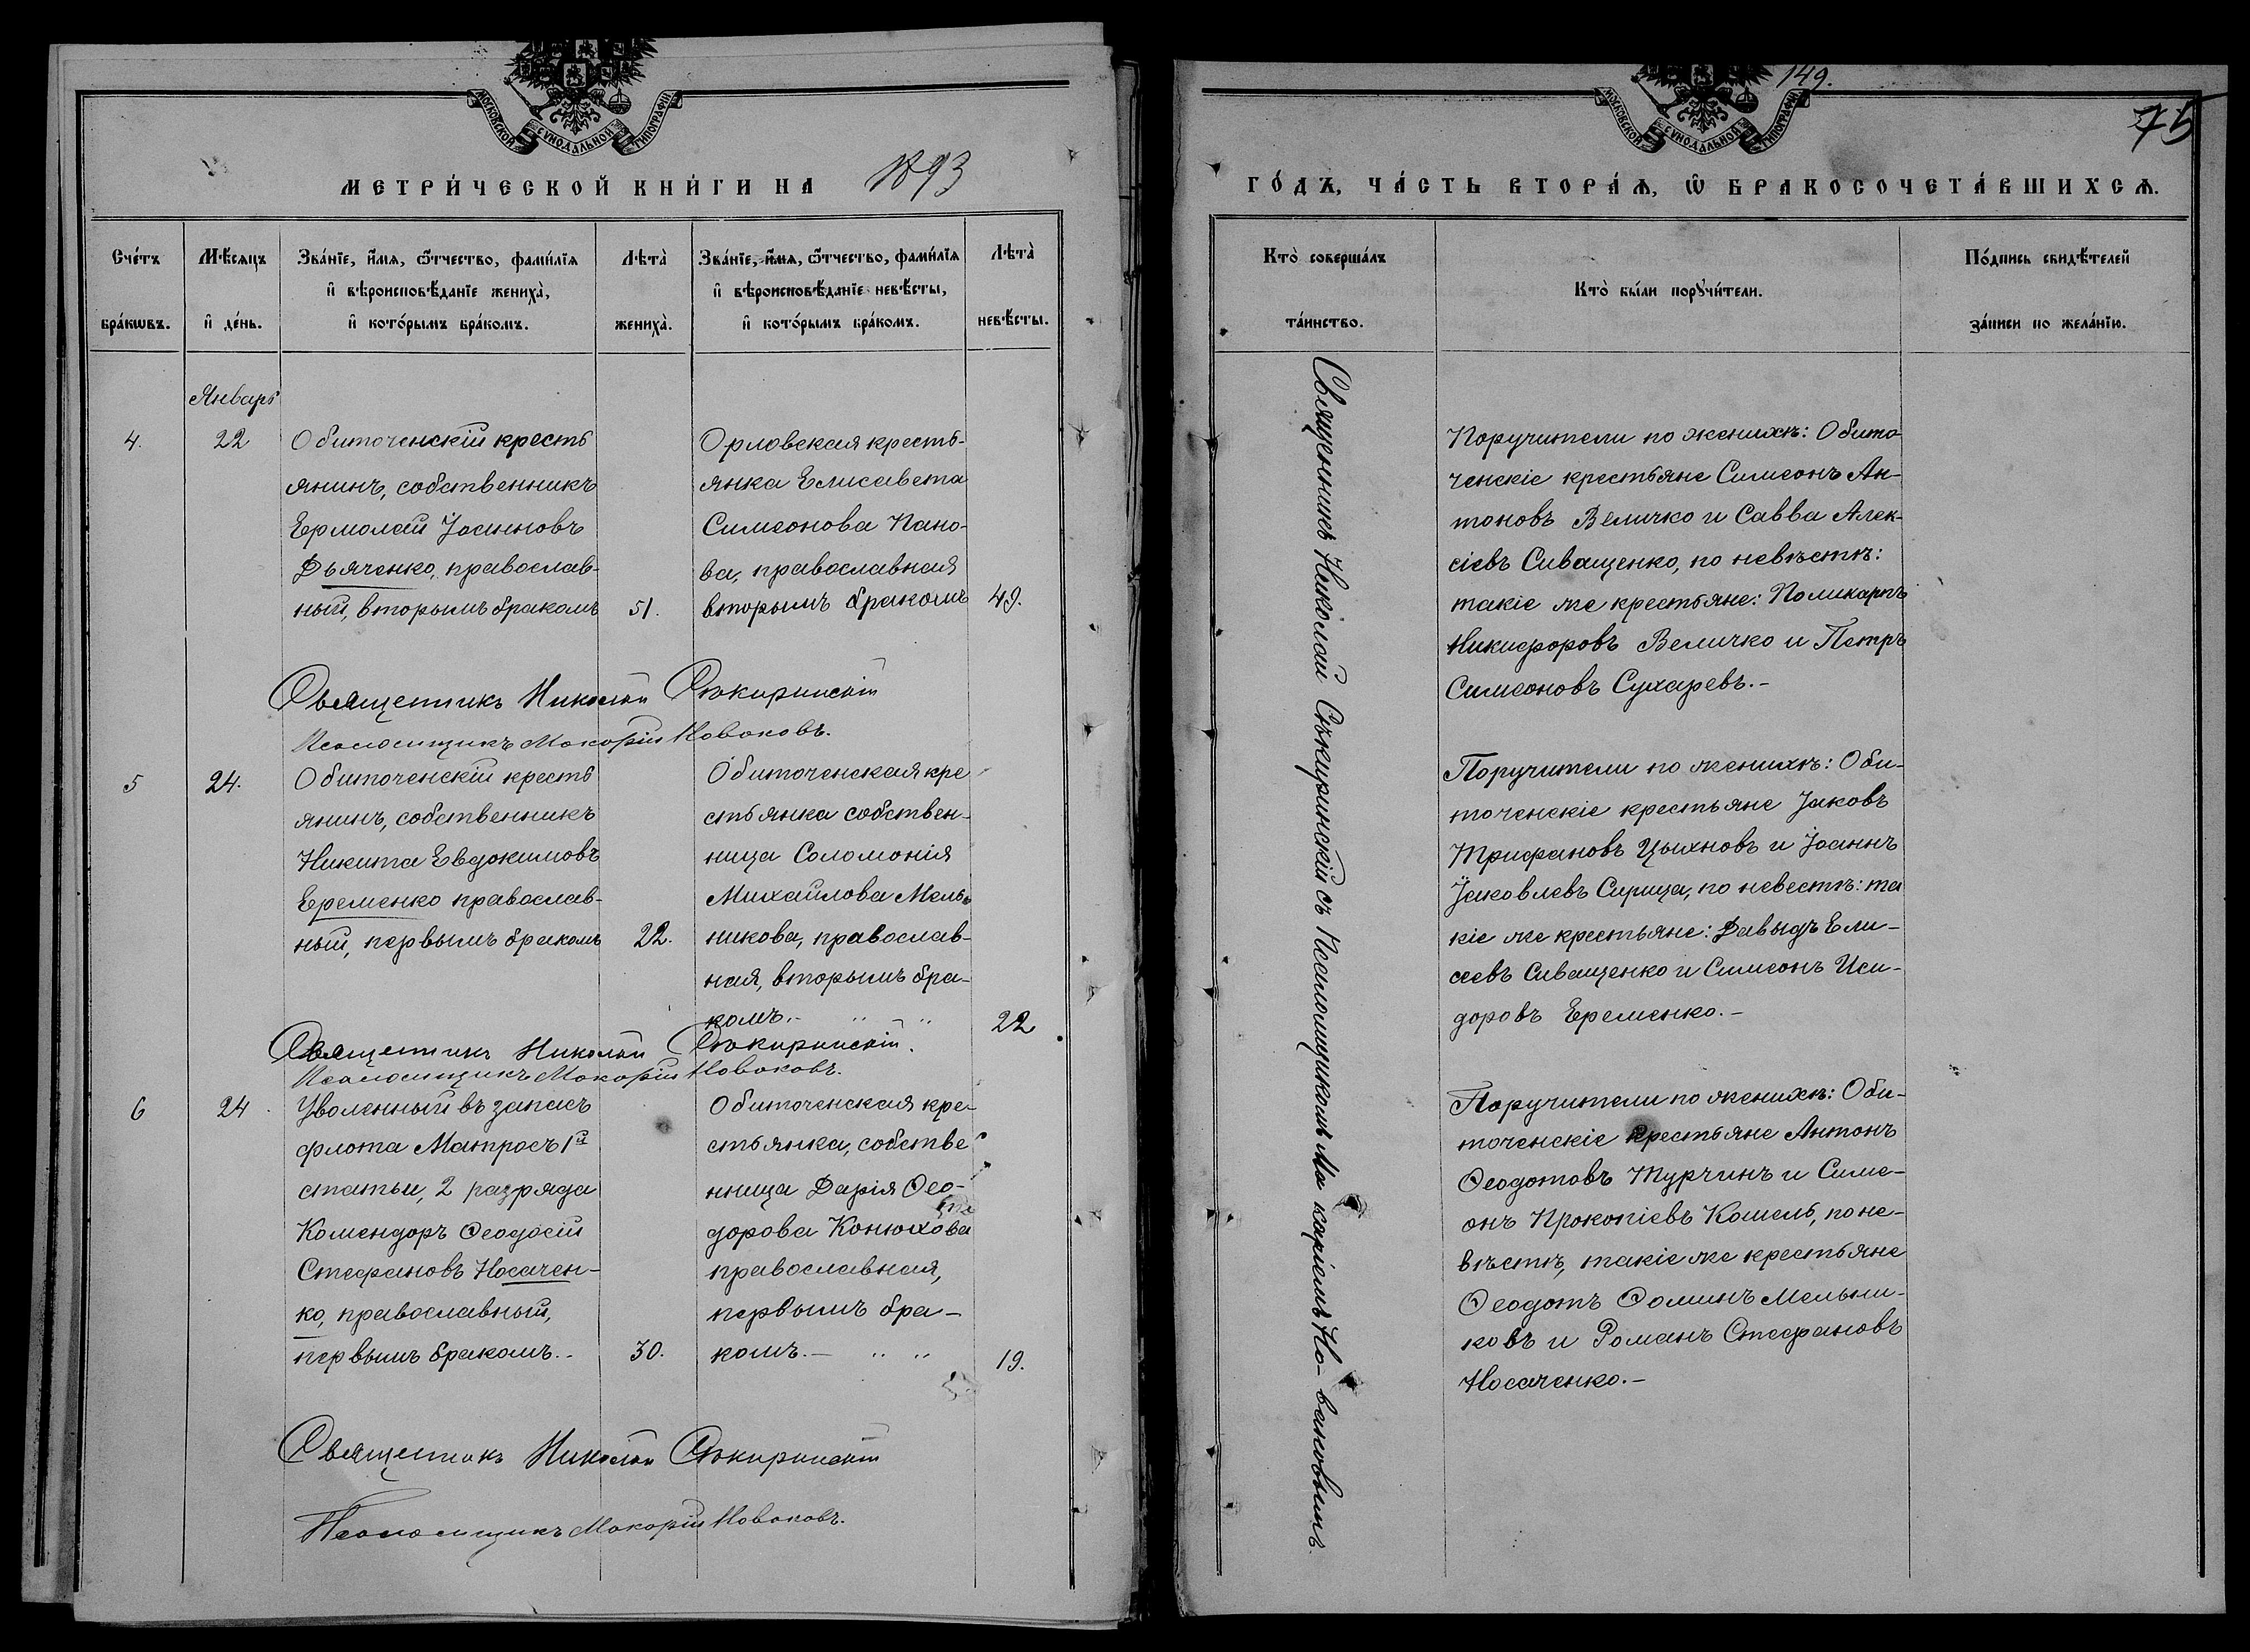 МОСКОВСКОЙ СУНОДАЛЬНОЙ ТИПОГРАФІИ
МЕТРИ́ЧЕСКОЙ КНИ́ГИ НА 1893
Сче́тъ бра́кѡвъ.
Мѣ́сяцъ и҆ де́нь.
Зва́нїе, и҆́мѧ, ѻ҆́тчество, фами́лїѧ
и҆ вѣроисповѣ́данїе жениха̀,
и҆ кото́рымъ бра́комъ.
Лѣта̀ жениха̀.
Зва́нїе, и҆́мѧ, ѻ҆́тчество, фами́лїѧ
и҆ вѣроисповѣ́данїе невѣ́сты,
и҆ кото́рымъ бра́комъ.
Лѣта̀ невѣ́сты.
Январь
4.
22
Обиточенскій кресть
янинъ, собственникъ
Ермолай Іоанновъ
Дьяченко, православ-
ный, вторымъ бракомъ
51.
Орловская кресть-
янка Елисавета
Симеонова Пано-
ва, православная
вторымъ бракомъ
49.
Священникъ Николай Сѣкиринскій
Псаломщикъ Макорій Новаковъ.
5
24.
Обиточенскій кресть
янинъ, собственникъ
Никита Евдокимовъ
Еременко православ-
ный, первымъ бракомъ
22.
Обиточенская кре
стьянка собствен-
ница Соломонія
Михайлова Мель
никова, православ-
ная, вторымъ бра-
комъ.-
22
Священникъ Николай Сѣкиринскій.
Псаломщикъ Макорій Новаковъ.
6
24.
Уволенный въ запасъ
флота Матросъ 1й
статьи, 2 разряда
Комендоръ Ѳеодосій
Стефановъ Носачен-
ко, православный,
первымъ бракомъ.-
30.
Обиточенская кре-
стьянка, собстве
нница Дарія Ѳео-
дорова Конюхова
православная,
первымъ бра-
комъ.-
19.
Священникъ Николай Сѣкиринскій
Псаломщикъ Макорій Новаковъ.
149.
75
МОСКОВСКОЙ СУНОДАЛЬНОЙ ТИПОГРАФІИ
ГО́ДЪ, ЧА́СТЬ ВТОРА́Ѧ, Ѡ҆ БРАКОСОЧЕТА́ВШИХСѦ.
Кто̀ соверша́лъ та́инство.
Кто̀ бы́ли порꙋчи́тели.
По́дпись свидѣ́телей за́писи по жела́нїю.
Священникъ Николай Сѣкиринскій съ Псаломщикомъ Макаріемъ Но-ваковымъ.
Поручители по женихѣ: Обито
ченскіе крестьяне Симеонъ Ан-
тоновъ Величко и Савва Алек-
сіевъ Сиващенко, по невѣстѣ:
такіе же крестьяне: Поликарпъ
Никифоровъ Величко и Петръ
Симеоновъ Сухаревъ.-
Поручители по женихѣ: Оби-
точенскіе крестьяне Іаковъ
Трифановъ Цыхновъ и Іоаннъ
Іаковлевъ Сирица, по невестѣ: та
кіе же крестьяне: Давыдъ Ели-
сеевъ Сиващенко и Симеонъ Иси-
доровъ Еременко.-
Поручители по женихѣ: Оби-
точенскіе крестьяне Антонъ
Ѳеодотовъ Турчинъ и Симе-
онъ Прокопіевъ Кошель, по не-
вѣстѣ, такіе же крестьяне
Ѳеодотъ Ѳоминъ Мельни-
ковъ и Романъ Стефановъ
Носаченко.-